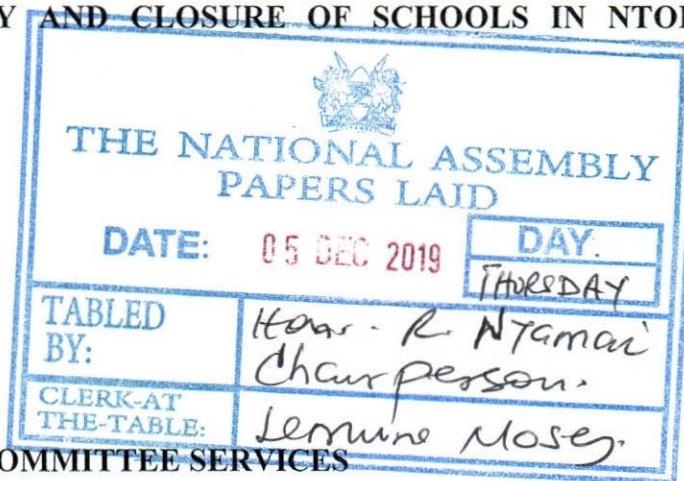 Y AND CLOSURE OF SCHOOLS IN NTO
THE NATIONAL ASSEMBLY
PAPERS LAID
DATE: 05 DEC 2019 DAY.
THURSDAY
TABLED BY: Hon. R. Nyamai
Chairperson.
CLERK-AT THE-TABLE: Moses
COMMITTEE SERVICES